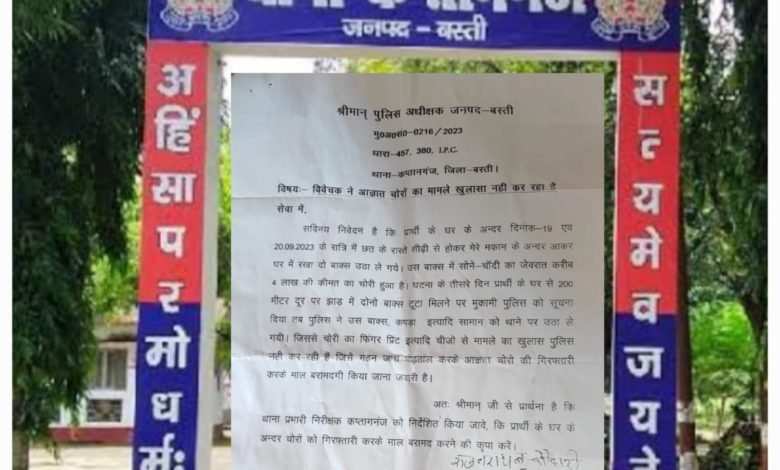 थाना कप्तानगंज
जनपद – बस्ती
अहिंसा परमो धर्मः
सत्यमेव जयते
श्रीमान् पुलिस अधीक्षक जनपद–बस्ती
मु0अ0सं0–0216/2023
धारा–457, 380, I.P.C.
थाना–कप्तानगंज, जिला–बस्ती।
विषयः– विवेचक ने आज्ञात चोरों का मामले खुलासा नही कर रहा है
सेवा में,
सविनय निवेदन है कि प्रार्थी के घर के अन्दर दिनांक–19 एवं
20.09.2023 के रात्रि में छत के रास्ते सीढ़ी से होकर मेरे मकान के अन्दर आकर
घर में रखा दो बाक्स उठा ले गये। उस बाक्स में सोने–चाँदी का जेवरात करीब
4 लाख की कीमत का चोरी हुआ है। घटना के तीसरे दिन प्रार्थी के घर से 200
मीटर दूर पर झाड में दोनो बाक्स टूटा मिलने पर मुकामी पुलिस को सूचना
दिया तब पुलिस ने उस बाक्स, कपड़ा इत्यादि सामान को थाने पर उठा ले
गयी। जिससे चोरी का फिंगर प्रिंट इत्यादि चीजो से मामले का खुलास पुलिस
नही कर रही हैं जिसे गहन जांच पड़ताल करके आज्ञात चोरो की गिरफ्तारी
करके माल बरामदगी किया जाना जरूरी है।
अतः श्रीमान् जी से प्रार्थना है कि
थाना प्रभारी निरीक्षक कप्तागनंज को निर्देशित किया जावे, कि प्रार्थी के घर के
अन्दर चोरों को गिरफ्तारी करके माल बरामद करने की कृपा करें।